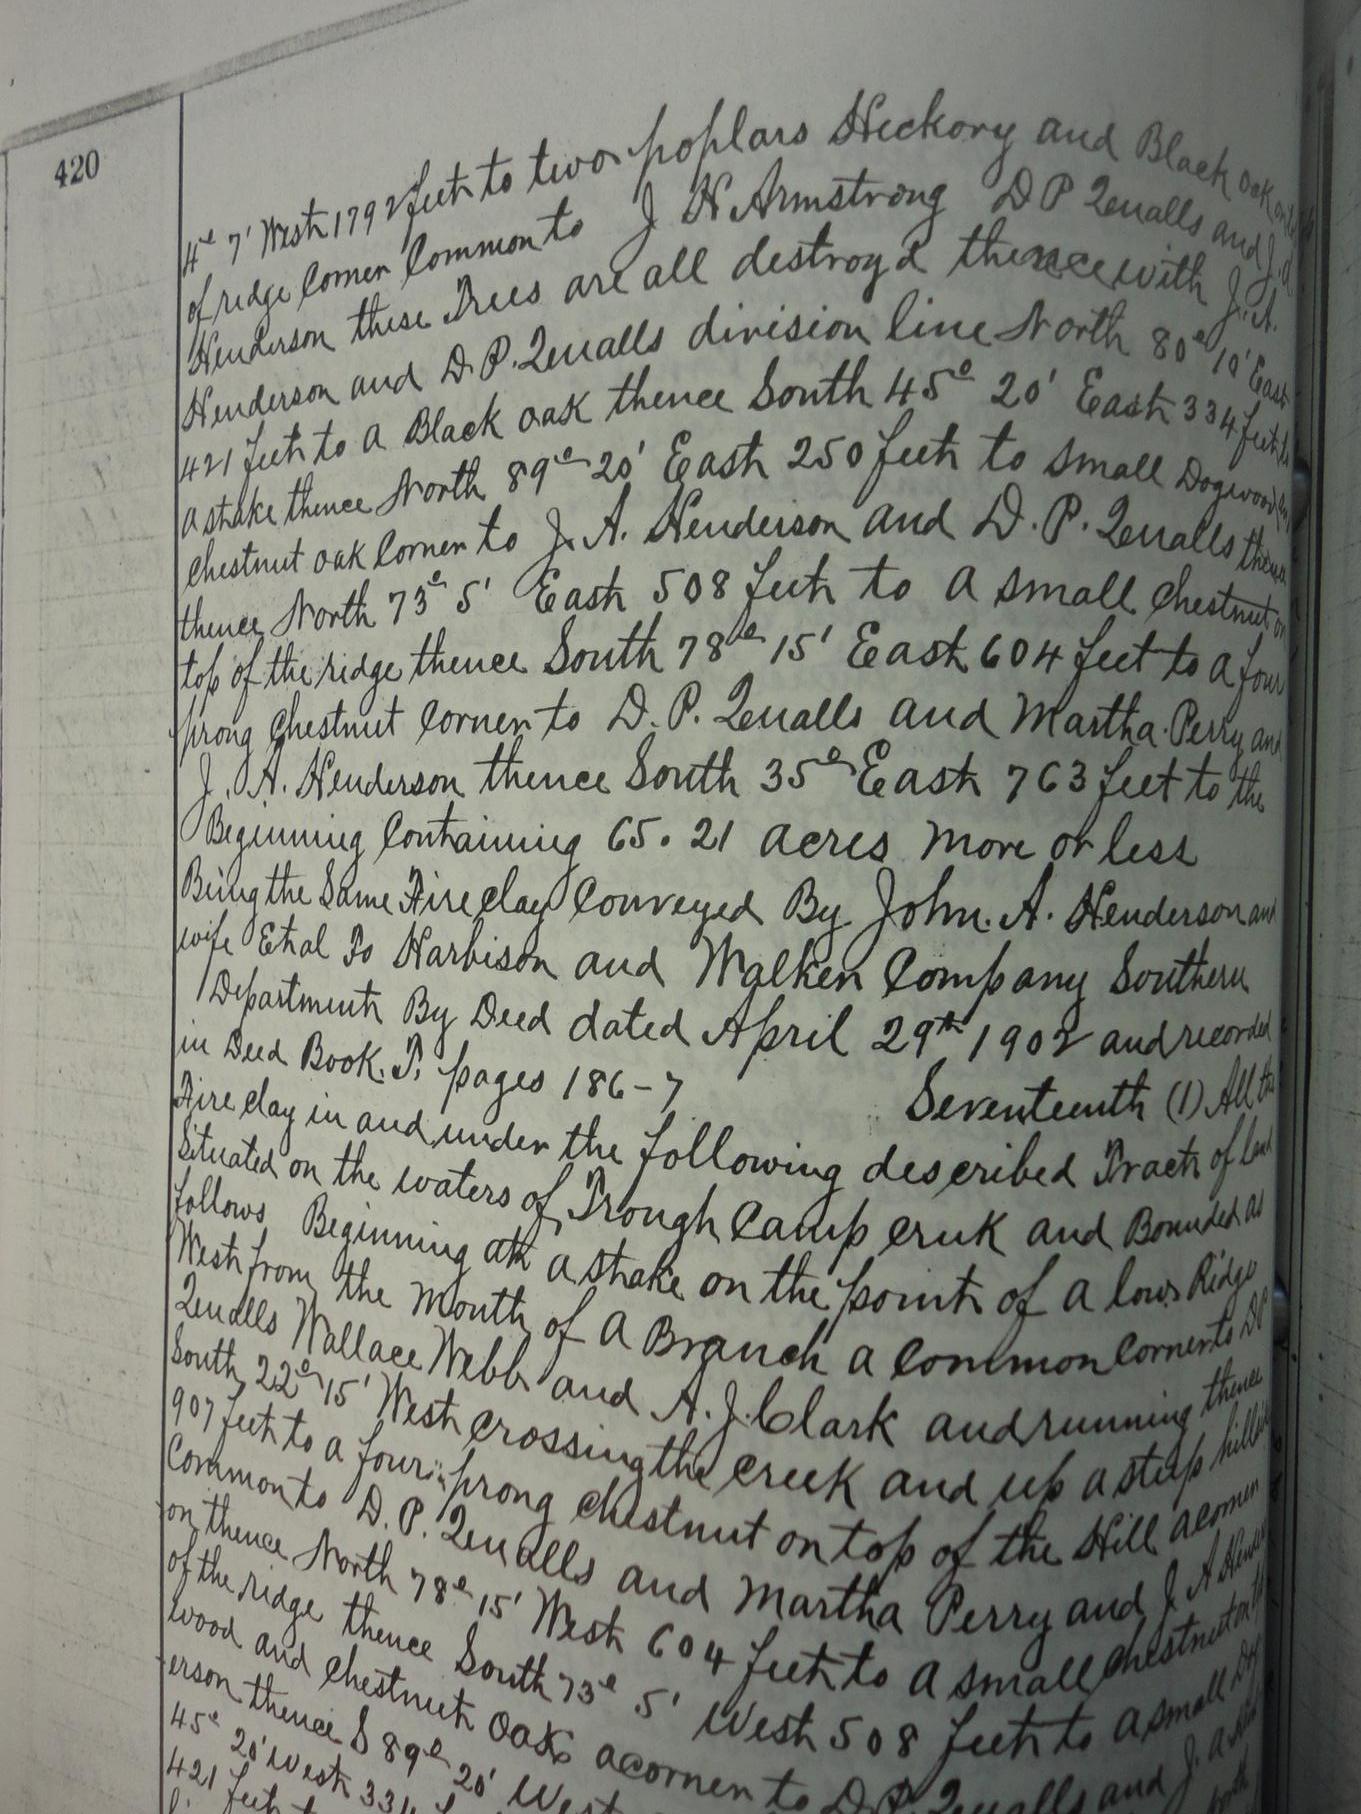 420
4° 7' West 1792 feet to two poplars Hickory and Black oak
of ridge Corner Common to J H Armstrong D P Qualls and J. A
Henderson these Trees are all destroyd thence with J. A.
Henderson and D. P. Qualls division line North 80° 10' East
421 feet to a Black oak thence South 45° 20' East 334 feet to
a stake thence North 89° 20' East 250 feet to small Dogwood
chestnut oak Corner to J. A. Henderson and D. P. Qualls
thence North 73° 5' East 508 feet to a small chestnut on
top of the ridge thence South 78° 15' East 604 feet to a four
prong chestnut Corner to D. P. Qualls and Martha Perry and
J. A. Henderson thence South 35° East 763 feet to the
Beginning Containing 65.21 acres more or less
Being the Same Fire clay Conveyed By John. A. Henderson and
wife Etal To Harbison and Walker Company Southern
Department By Deed dated April 29th 1902 and recorded
in Deed Book. T. pages 186-7 Seventeenth (1) All the
Fire clay in and under the following described Tract of land
Situated on the waters of Trough Camp creek and Bounded as
follows Beginning at a stake on the point of a low Ridge
West from the Mouth of a Branch a Common Corner to D P
Qualls Wallace Webb and A. J. Clark and running thence
South 22° 15' West crossing the creek and up a steep hillside
907 feet to a four prong chestnut on top of the Hill a corner
Common to D. P. Qualls and Martha Perry and J A
on thence North 78° 15' West 604 feet to a small chestnut on
of the ridge thence South 73° 5' West 508 feet to a small Dog
wood and chestnut Oak a corner to D. P. Qualls and J. A
erson thence S 89° 20' West
45° 20' West 334
421 feet